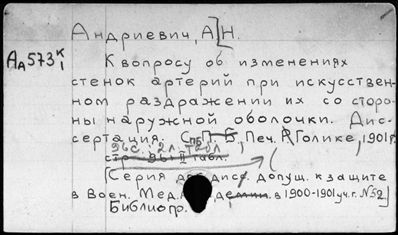 Андриевич, А]Н.
АА573 К/1
К вопросу об изменениях
стенок артерий при искусствен-
ном раздражении их со сторо-
ны наружной оболочки. Дис-
сертация. Спб, Печ. Р. Голике, 1901г.
96с. 2л. табл.
стр. 96+II табл.
[Серия дисс. допущ. к защите
в Воен. Мед. в 1900-1901 уч. г. №52]
Библиогр.